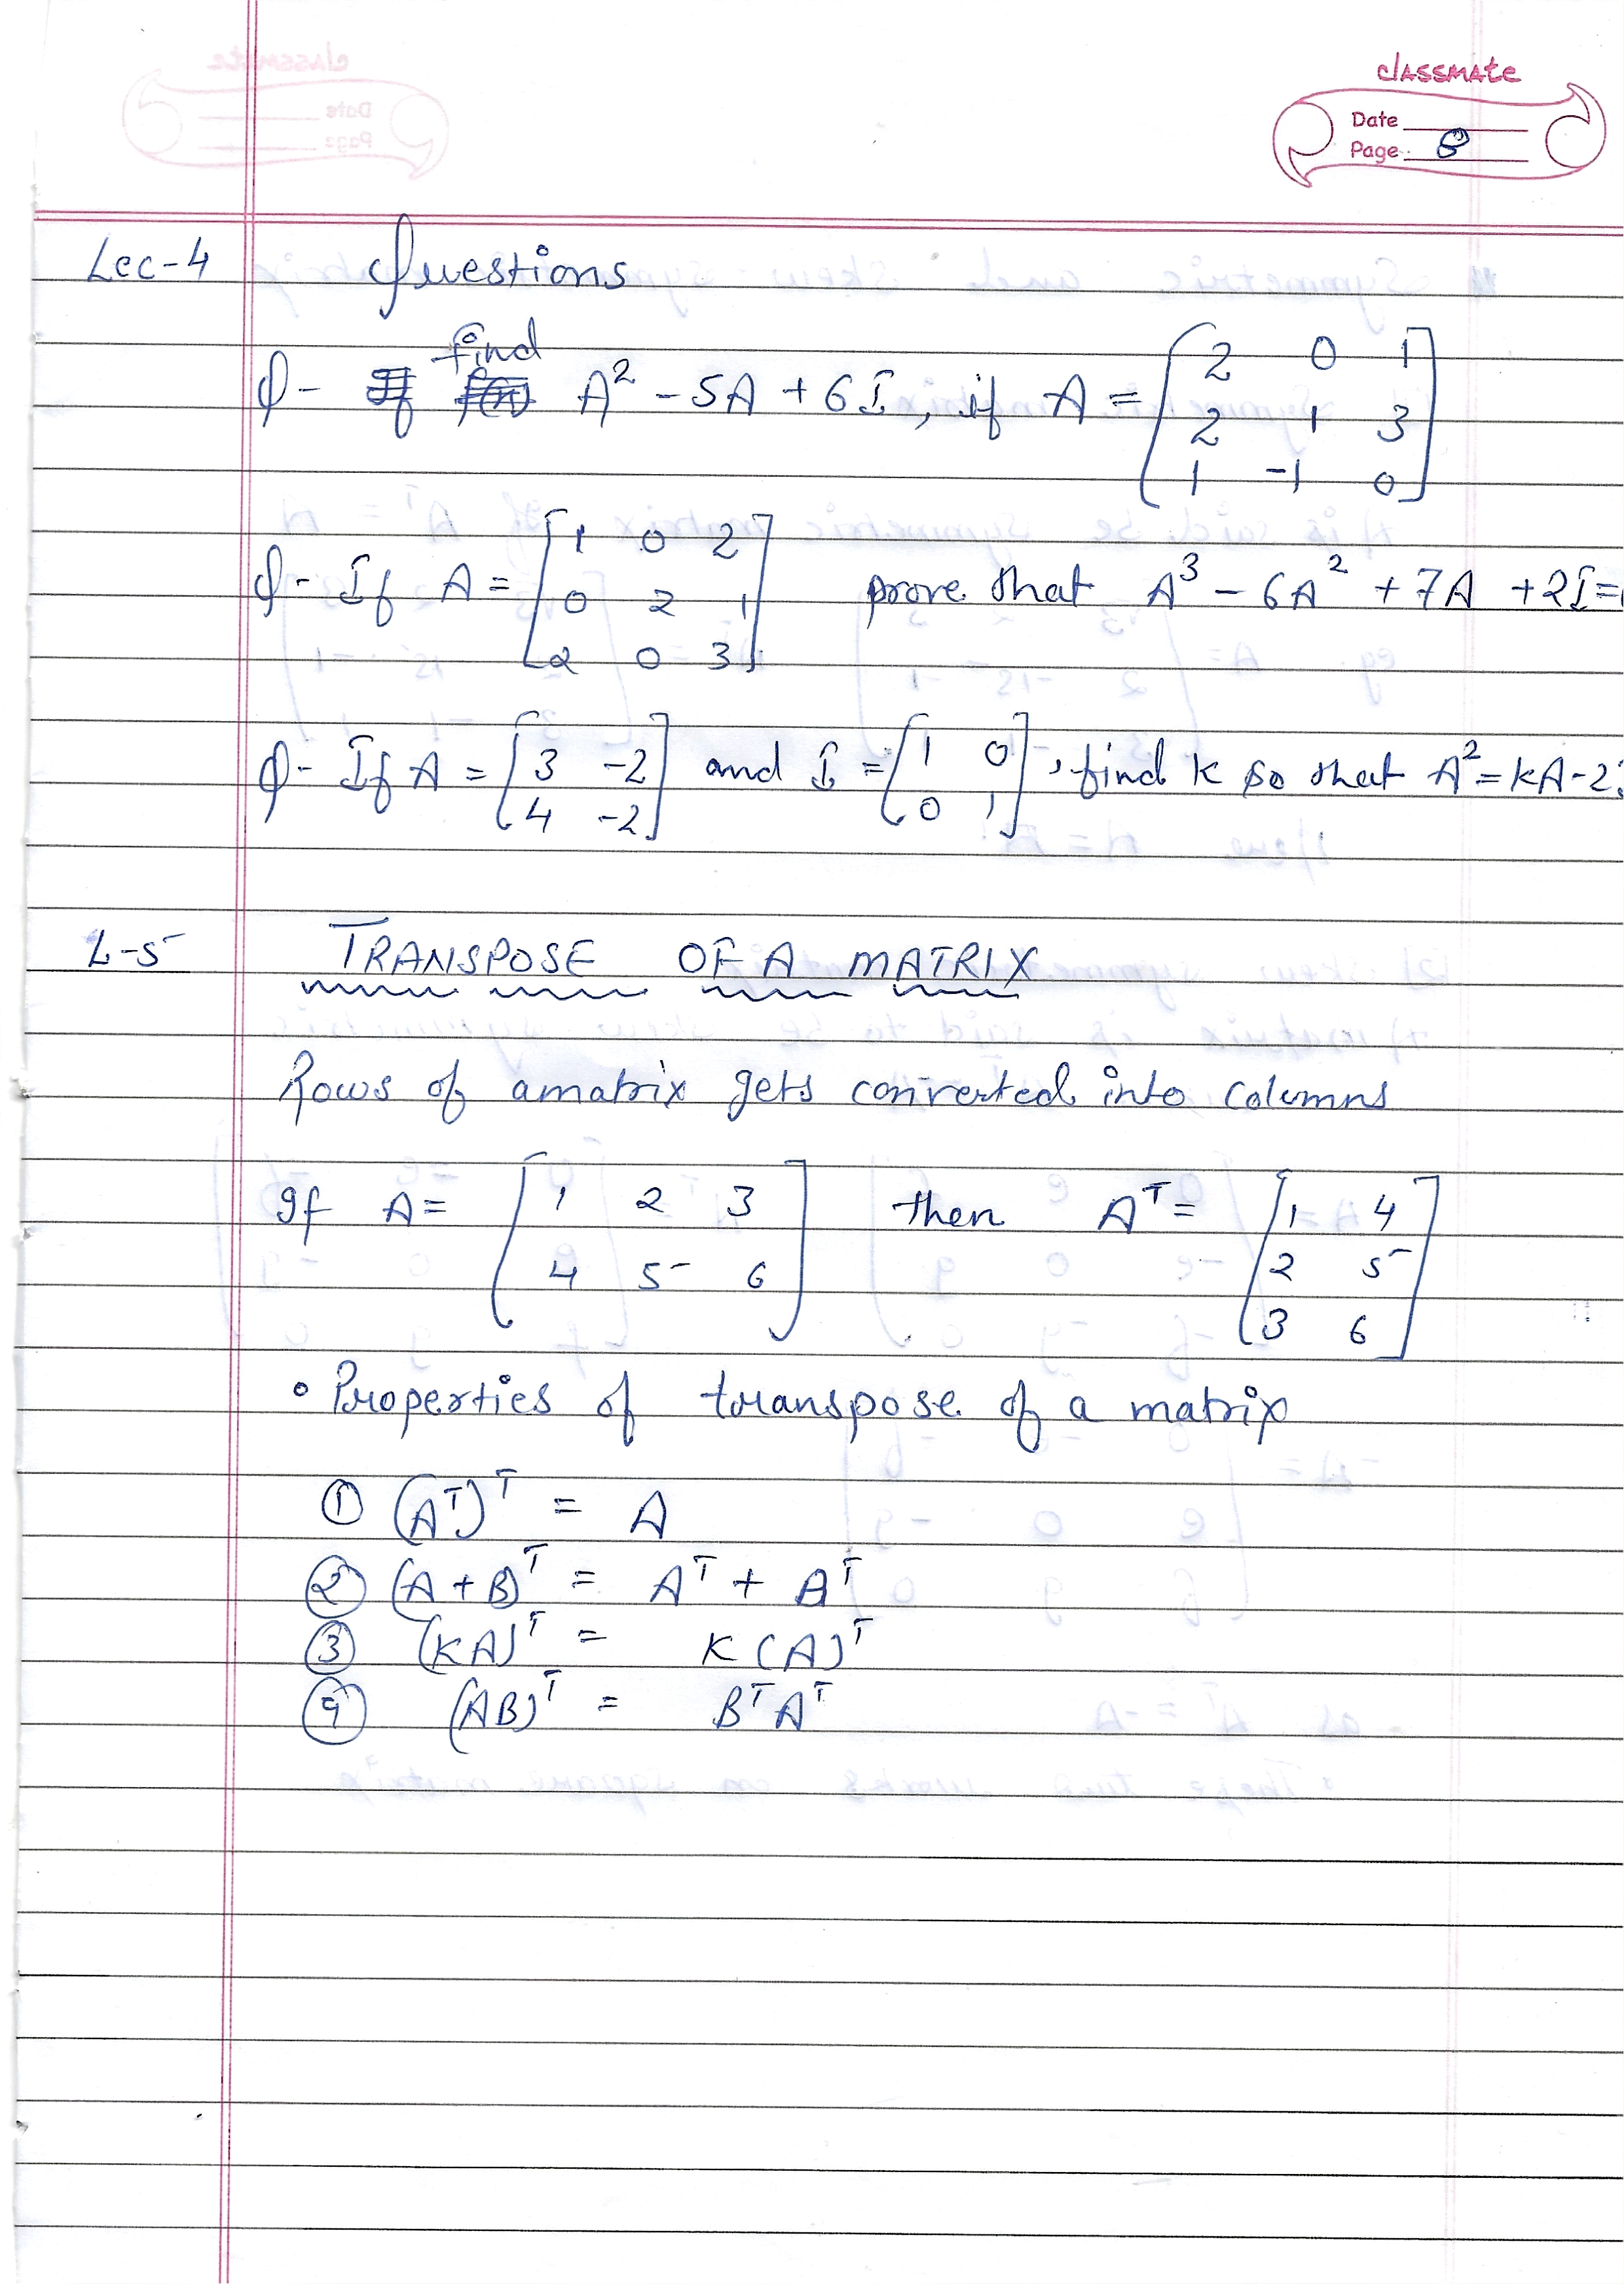 classmate
Date
Page 8
Lec-4 Questions
Q- find A² - 5A + 6I, if A = [2 0 1
2 1 3
1 -1 0]
Q- If A = [1 0 2
0 2 1
2 0 3] prove that A³ - 6A² + 7A + 2I =
Q- If A = [3 -2
4 -2] and I = [1 0
0 1], find k so that A² = kA - 2
L-5 TRANSPOSE OF A MATRIX
Rows of a matrix gets converted into columns
If A = [1 2 3
4 5 6] then Aᵀ = [1 4
2 5
3 6]
• Properties of transpose of a matrix
① (Aᵀ)ᵀ = A
② (A + B)ᵀ = Aᵀ + Bᵀ
③ (KA)ᵀ = K (A)ᵀ
④ (AB)ᵀ = BᵀAᵀ